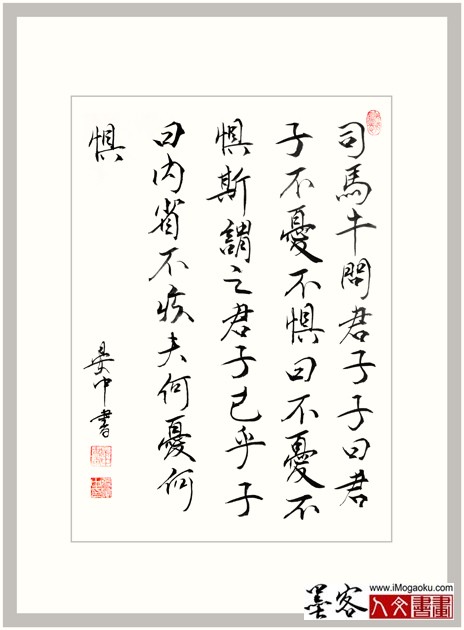 司馬牛問君子子曰君
子不憂不惧曰不憂不
惧斯謂之君子已乎子
曰内省不疚夫何憂何
惧
晏中書
墨客
www.iMogaoku.com
人文書畫